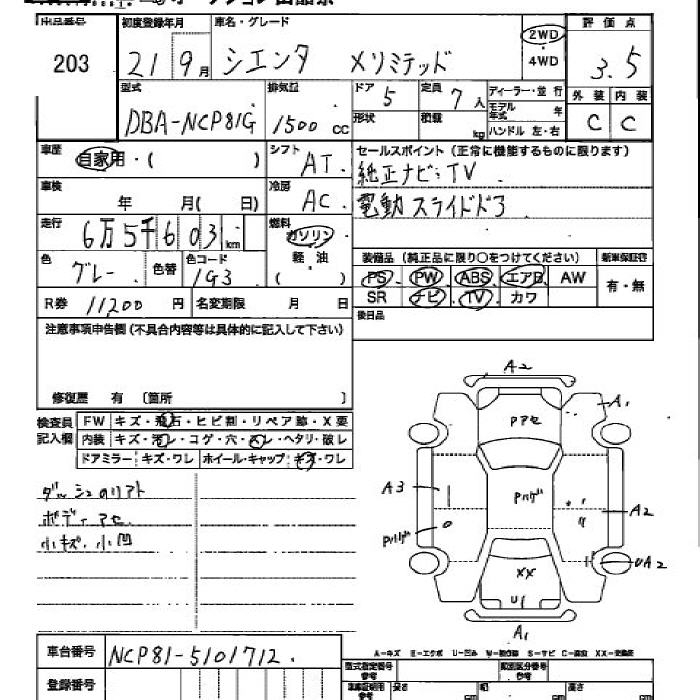 出品番号 初度登録年月 車名・グレード 2WD 評価点
203 21 9月 シエンタ メリミテッド ・ 3.5
4WD
型式 排気記 ドア 定員 ディーラー・並行 外装 内装
DBA-NCP81G 1500cc 5 7人 モデル年式 年 C C
形状 積載 kg ハンドル 左・右
車歴 自家用・( ) シフト AT. セールスポイント(正常に機能するものに限ります)
純正ナビ:TV
車検 年 月( 日) 冷房 AC. 電動スライドドア
走行 6万5千603km 燃料 ガソリン
軽・油
( ・ )
色 グレー 色替 色コード 1G3 装備品(純正品に限り○をつけてください) 新車保証書
PS. PW. ABS. エアB. AW 有・無
SR ナビ. TV. カワ
R券 11,200円 名変期限 月 日 後日品
注意事項申告欄(不具合内容等は具体的に記入して下さい)
修復歴 有 〔箇所 〕
検査員記入欄 FW キズ・飛石・ヒビ割・リペア跡・X要
内装 キズ・汚レ・コゲ・穴・スレ・ヘタリ・破レ
ドアミラー キズ・ワレ ホイール・キャップ キズ・ワレ
ダッシュのリアト
ボディアセ
小キズ、小凹
A2
A1
Pアセ
A3
Pハゲ
A2
Pハゲ
UA2
XX
U1
A1
A-キズ E-エクボ U-凹み W-補修跡 S-サビ C-腐食 XX-交換済
車台番号 NCP81-5101712.
登録番号
型式指定番号 参考 類別区分番号 参考
長さ 幅 高さ